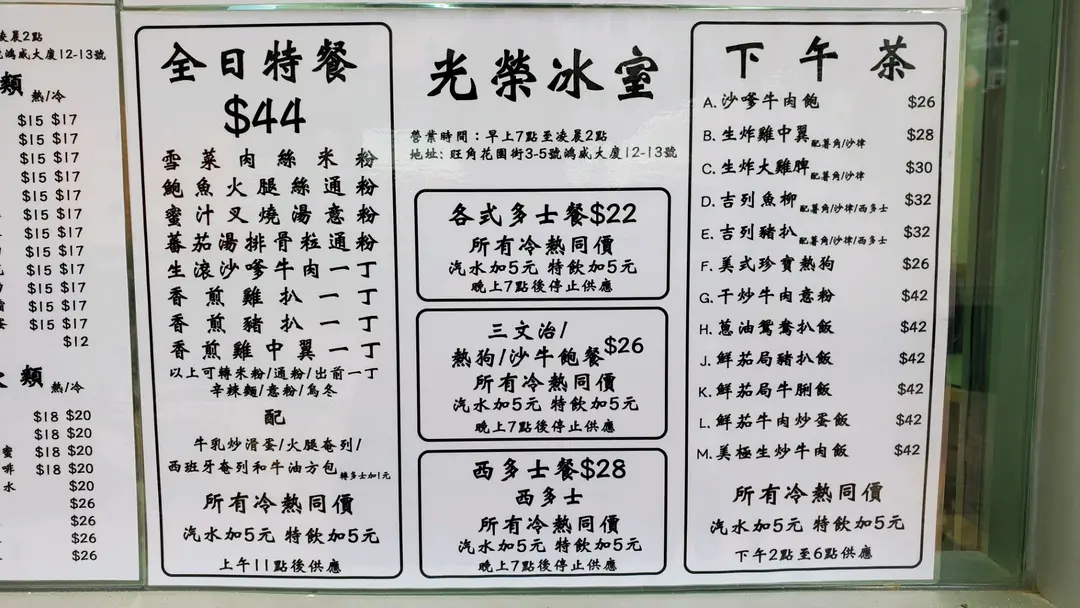 凌晨2點
鴻威大廈12-13號
類 熱/冷
$15 $17
$15 $17
$15 $17
$15 $17
$15 $17
$15 $17
$15 $17
$15 $17
$15 $17
$15 $17
$15 $17
$15 $17
$12
類 熱/冷
$18 $20
$18 $20
蜜 $18 $20
啡 $18 $20
水 $20
$26
$26
$26
$26
全日特餐
$44
雪菜肉絲米粉
鮑魚火腿絲通粉
蜜汁叉燒湯意粉
蕃茄湯排骨粒通粉
生滾沙嗲牛肉一丁
香煎雞扒一丁
香煎豬扒一丁
香煎雞中翼一丁
以上可轉米粉/通粉/出前一丁
辛辣麵/意粉/烏冬
配
牛乳炒滑蛋/火腿奄列/
西班牙奄列和牛油方包 轉多士加1元
所有冷熱同價
汽水加5元 特飲加5元
上午11點後供應
光榮冰室
營業時間：早上7點至凌晨2點
地址: 旺角花園街3-5號鴻威大廈12-13號
各式多士餐$22
所有冷熱同價
汽水加5元 特飲加5元
晚上7點後停止供應
三文治/
熱狗/沙牛飽餐$26
所有冷熱同價
汽水加5元 特飲加5元
晚上7點後停止供應
西多士餐$28
西多士
所有冷熱同價
汽水加5元 特飲加5元
晚上7點後停止供應
下午茶
A. 沙嗲牛肉飽 $26
B. 生炸雞中翼 配薯角/沙律 $28
C. 生炸大雞脾 配薯角/沙律 $30
D. 吉列魚柳 配薯角/沙律/西多士 $32
E. 吉列豬扒 配薯角/沙律/西多士 $32
F. 美式珍寶熱狗 $26
G. 干炒牛肉意粉 $42
H. 蔥油鴛鴦扒飯 $42
J. 鮮茄局豬扒飯 $42
K. 鮮茄局牛脷飯 $42
L. 鮮茄牛肉炒蛋飯 $42
M. 美極生炒牛肉飯 $42
所有冷熱同價
汽水加5元 特飲加5元
下午2點至6點供應